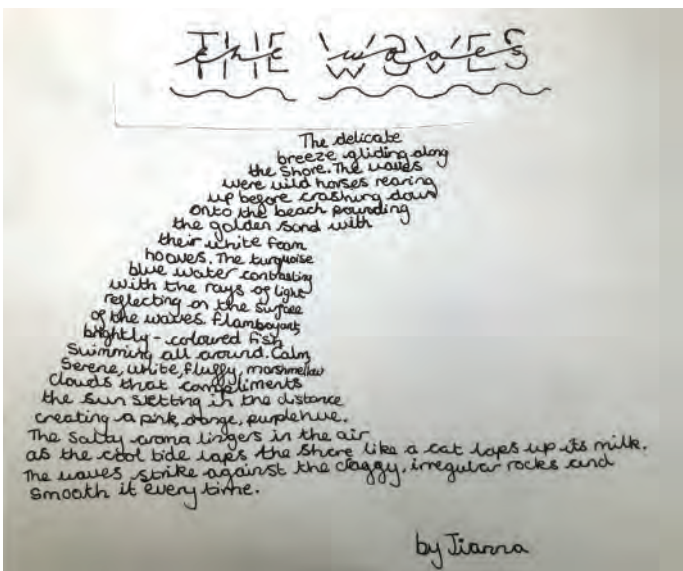 THE WAVES
The delicate
breeze gliding along
the shore. The waves
were wild horses rearing
up before crashing down
onto the beach pounding
the golden sand with
their white foam
hooves. The turquoise
blue water contrasting
with the rays of light
reflecting on the surface
of the waves. Flamboyant,
brightly-coloured fish
Swimming all around. Calm,
Serene, white, fluffy, marshmellow
clouds that compliments
the sun setting in the distance
creating a pink, orange, purple hue.
The Salty aroma lingers in the air
as the cool tide laps the shore like a cat laps up its milk.
The waves strike against the craggy, irregular rocks and
Smooth it every time.
by Tianna